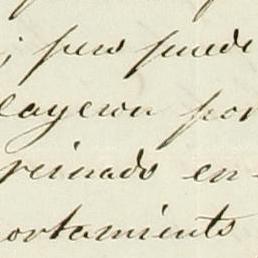 ; pero puede
layeron por
reinado en-
ortamiento